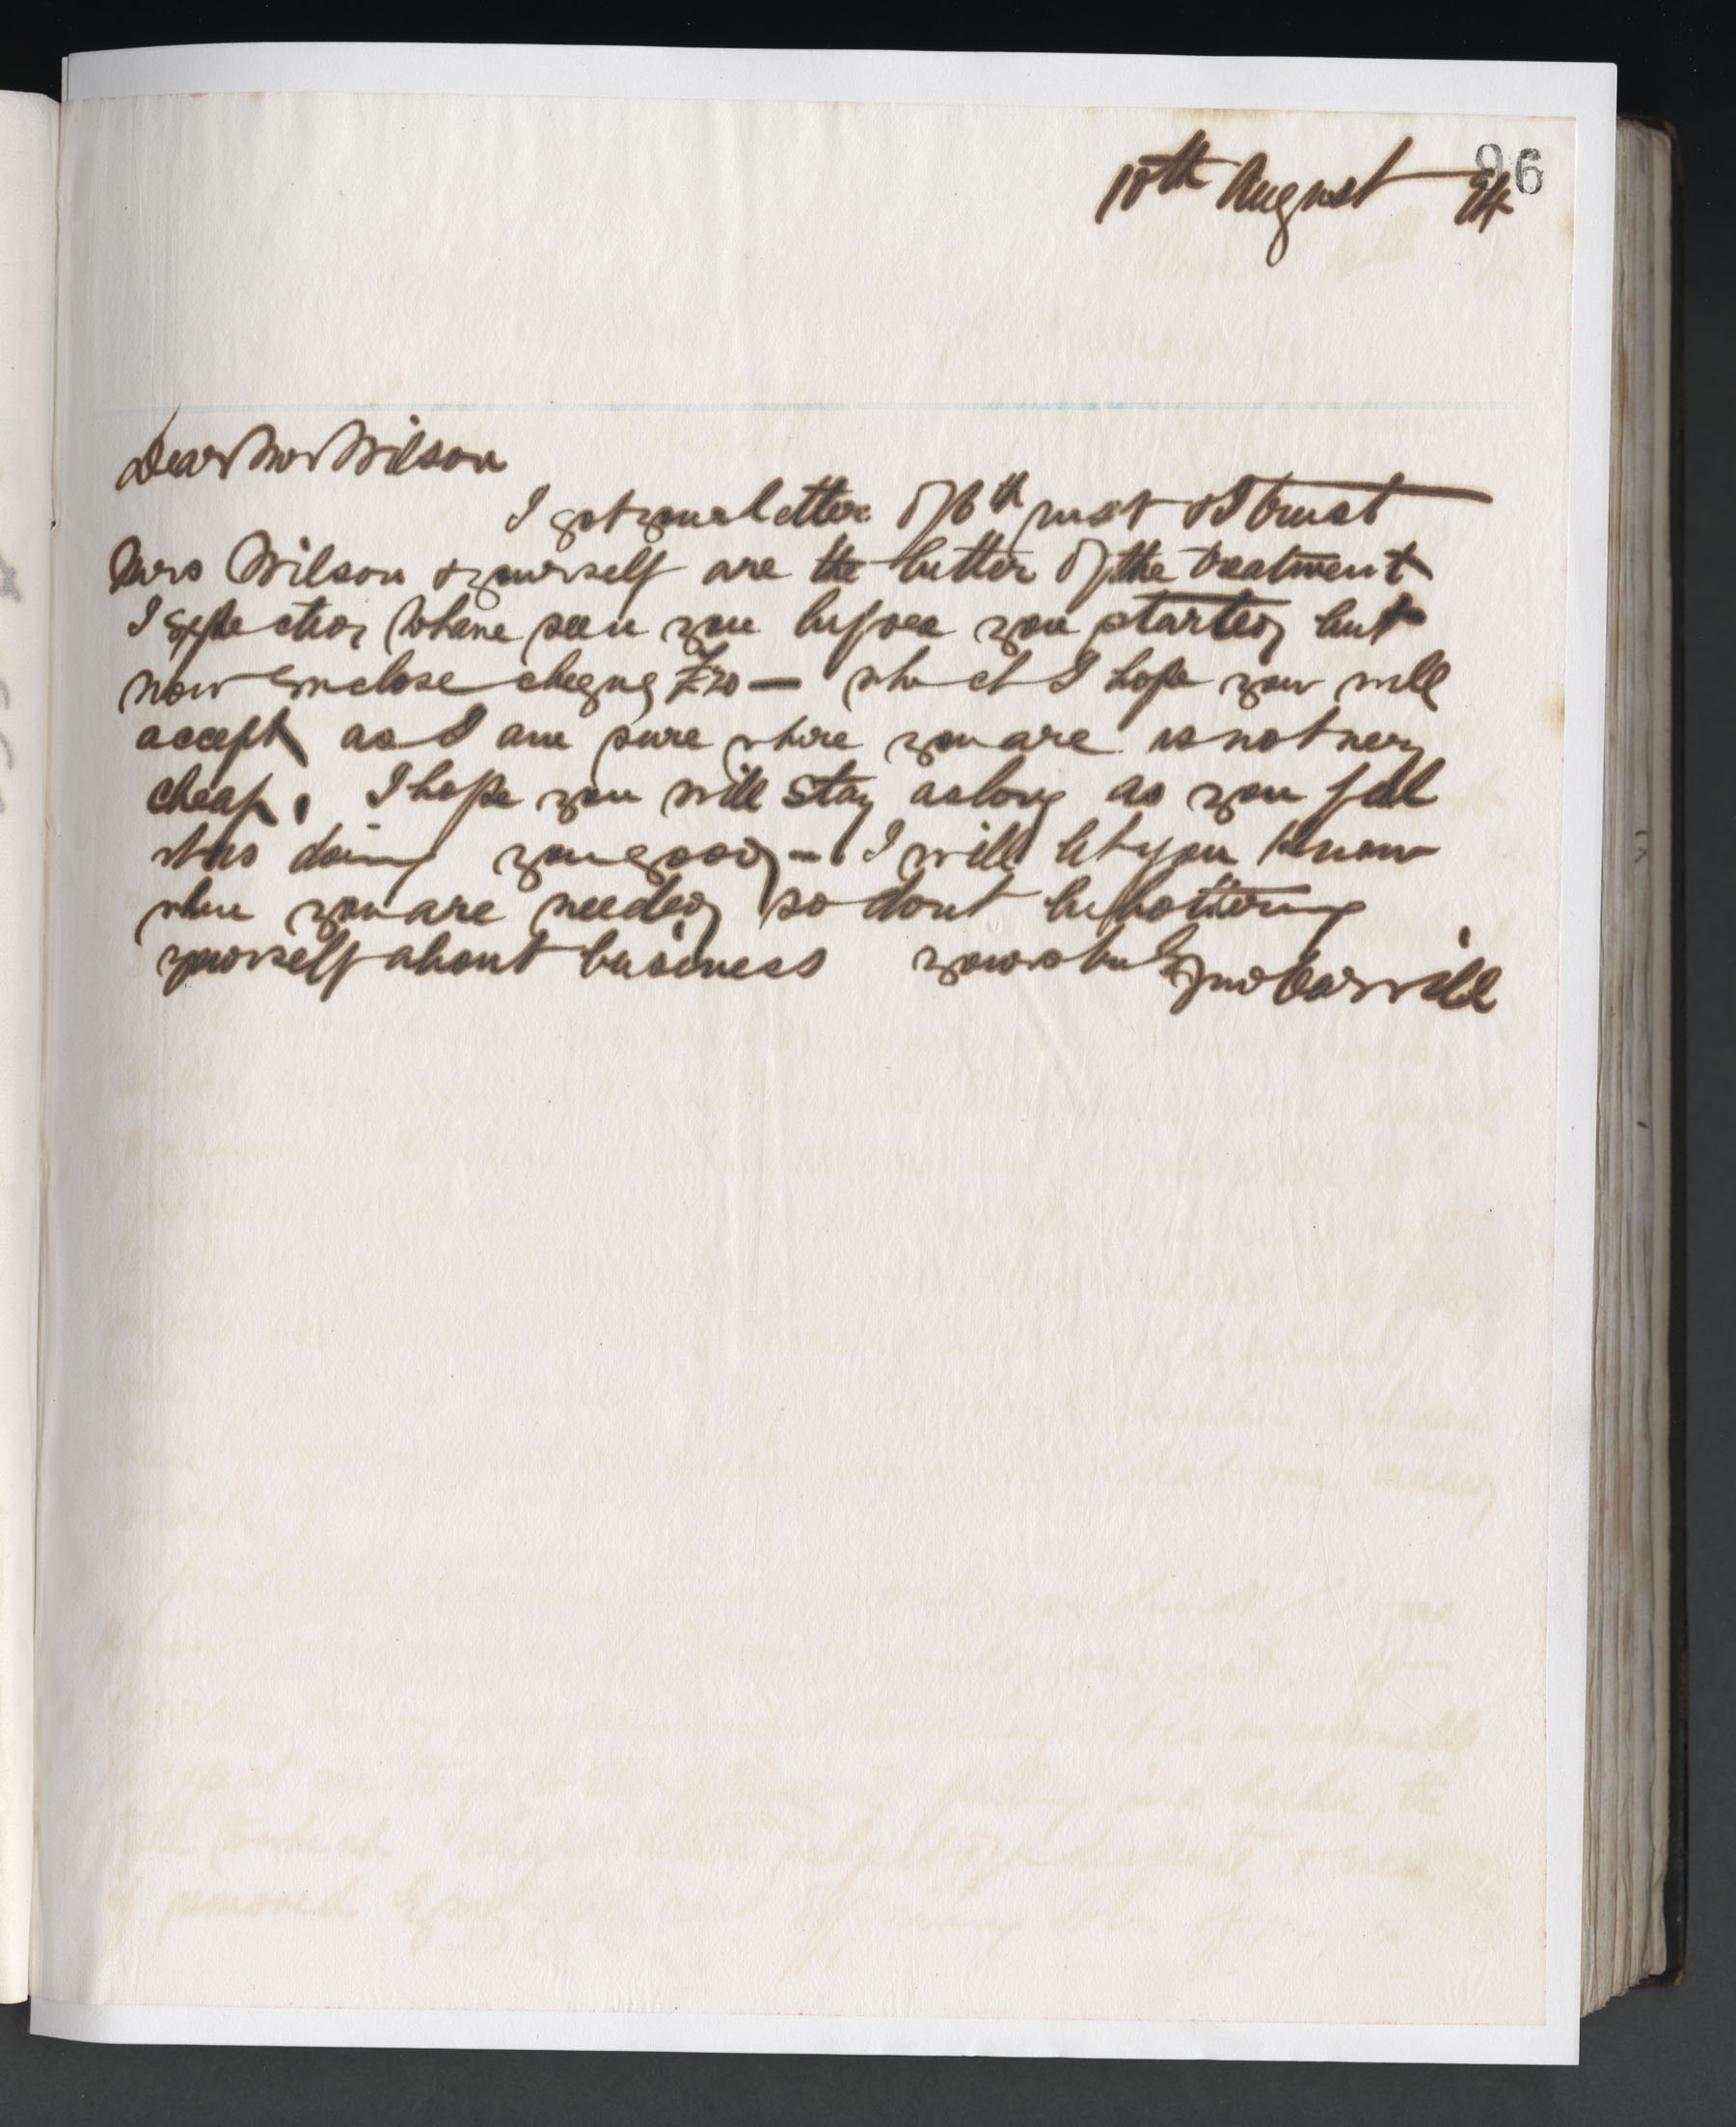 96
10th August 94
Dear Mr Wilson
I got your letter of 6th inst & I trust
Mrs Wilson & yourself are the better of the treatment
I expected to have seen you before you started but
now enclose cheque £20 — which I hope you will
accept as I am sure where you are is not very
cheap. I hope you will stay as long as you feel
it is doing you good — I will let you know
when you are needed so dont be bothering
yourself about business yours truly Jno Carvill